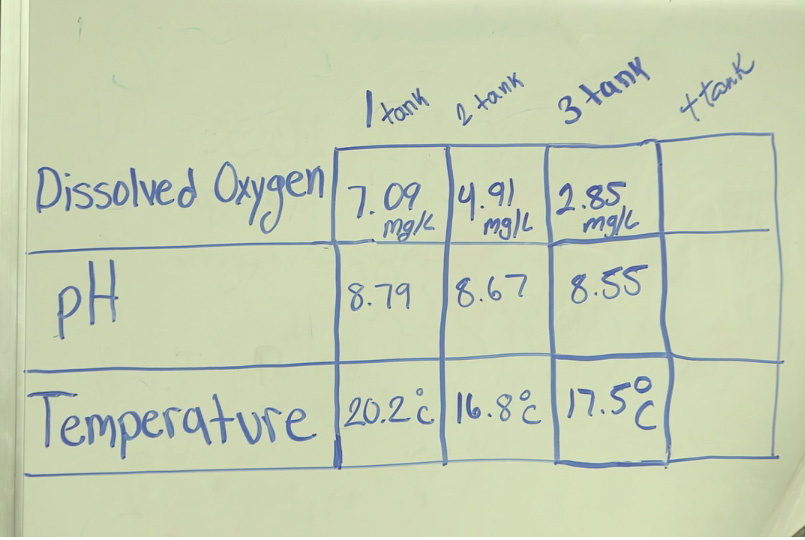 1 tank 2 tank 3 tank + tank
Dissolved Oxygen 7.09 mg/L 4.91 mg/L 2.85 mg/L
pH 8.79 8.67 8.55
Temperature 20.2°C 16.8°C 17.5°C